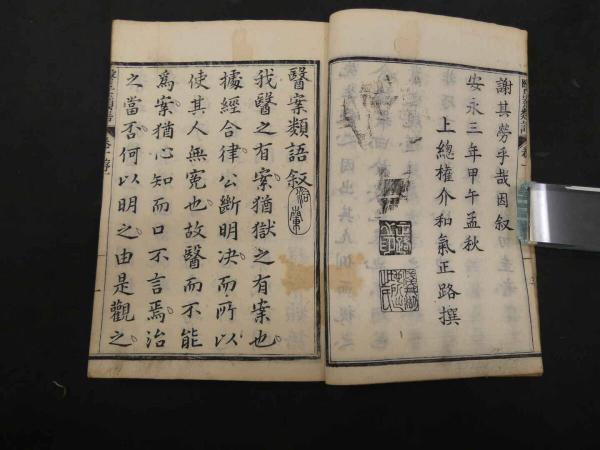 謝其勞乎哉因叙
安永三年甲午孟秋
上總權介和氣正路撰
醫案類語叙
我醫之有案猶獄之有案也
據經合律公斷明决而所以
使其人無寃也故醫而不能
爲案猶心知而口不言焉治
之當否何以明之由是觀之